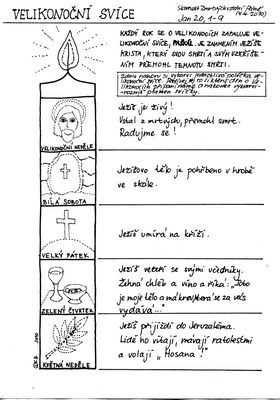 VELIKONOČNÍ SVÍCE
Slavnost Zmrtvýchvstání Páně
(4.4.2010)
Jan 20, 1-9
KAŽDÝ ROK SE O VELIKONOCÍCH ZAPALUJE VE-
LIKONOČNÍ SVÍCE, PAŠKÁL. JE ZNAMENÍM JEŽÍŠE
KRISTA, KTERÝ BÍDU SMRTI A SVÝM VZKŘÍŠE-
NÍM PŘEMOHL TEMNOTU SMRTI.
Ježíš je živý!
Vstal z mrtvých, přemohl smrt.
Radujme se!
VELIKONOČNÍ NEDĚLE
Ježíšovo tělo je pohřbeno v hrobě
ve skále.
BÍLÁ SOBOTA
Ježíš umírá na kříži.
VELKÝ PÁTEK
Ježíš večeří se svými učedníky.
Žehná chléb a víno a říká: "Toto
je moje tělo a má krev, která se za vás
vydává..."
ZELENÝ ČTVRTEK
Ježíš přijíždí do Jeruzaléma.
Lidé ho vítají, mávají ratolestmi
a volají „Hosana!"
KVĚTNÁ NEDĚLE
2010